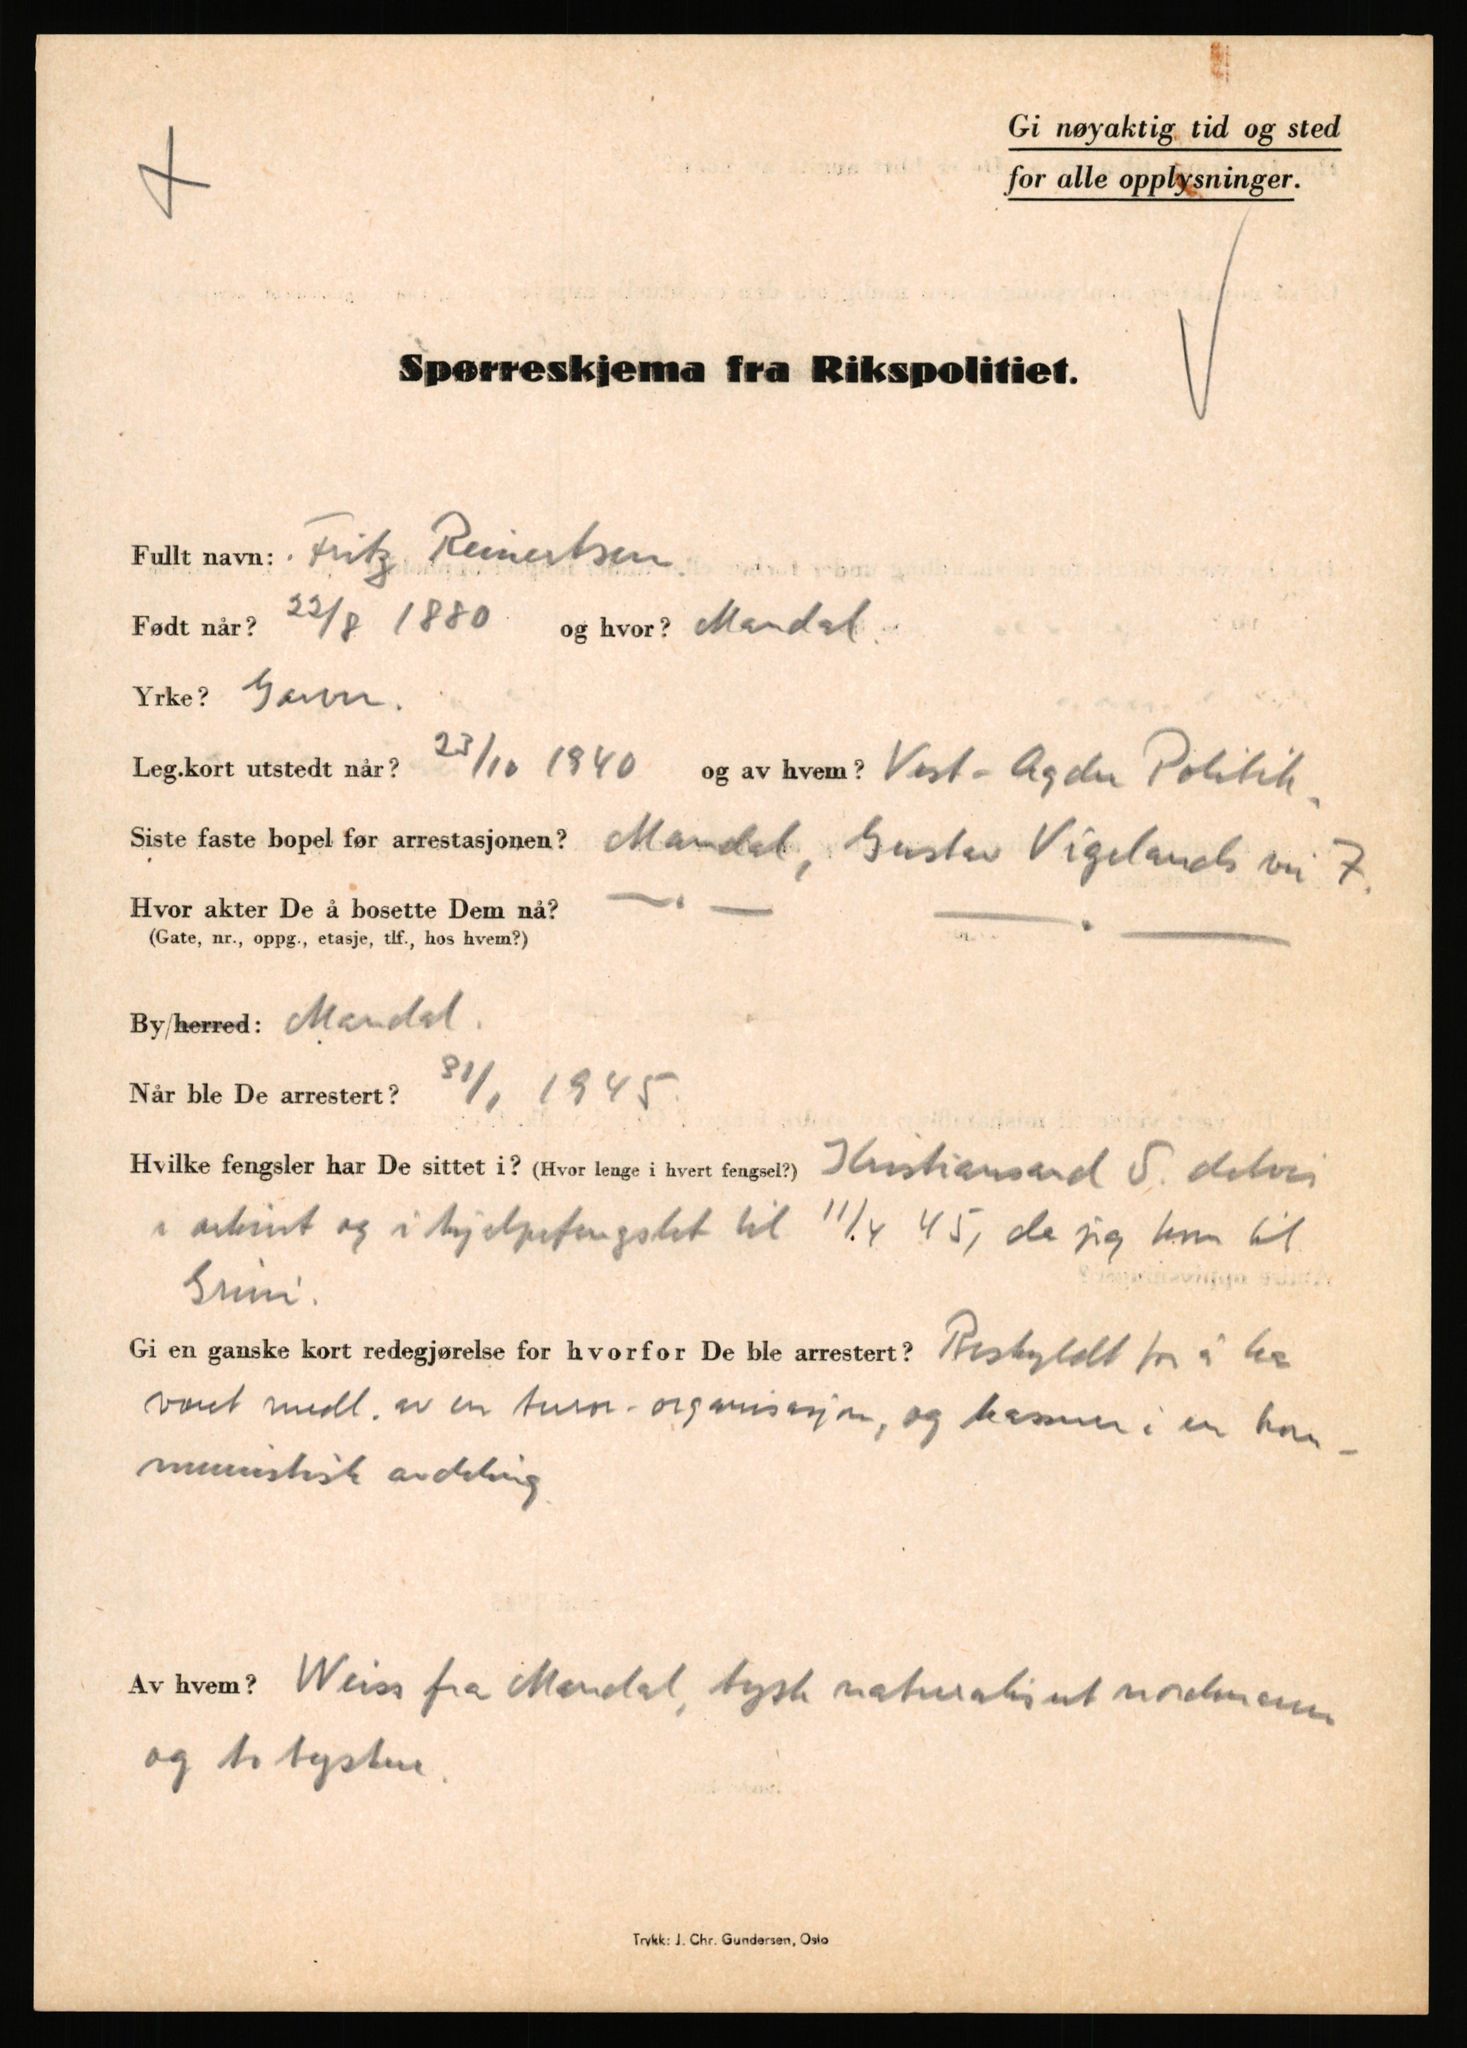 Gi nøyaktig tid og sted
for alle opplysninger.
Spørreskjema fra Rikspolitiet.
Fullt navn: Fritz Reinertsen
Født når? 22/8 1880 og hvor? Mandal.
Yrke? Garver.
Leg.kort utstedt når? 23/10 1940 og av hvem? Vest-Agder Politik.
Siste faste bopel før arrestasjonen? Mandal, Gustav Vigelands vei 7.
Hvor akter De å bosette Dem nå? — . — — . —
(Gate, nr., oppg., etasje, tlf., hos hvem?)
By/herred: Mandal.
Når ble De arrestert? 31/1 1945.
Hvilke fengsler har De sittet i? (Hvor lenge i hvert fengsel?) Kristiansand S. delvis
i arkivet og i hjelpefengslet til 11/4 45, da jeg kom til
Grini.
Gi en ganske kort redegjørelse for hvorfor De ble arrestert? Beskyldt for å ha
været medl. av en terror-organisasjon, og kasserer i en kom-
munistisk avdeling.
Av hvem? Weiss fra Mandal, tysk naturalisert nordmann
og to tyskere.
Trykk: J. Chr. Gundersen, Oslo